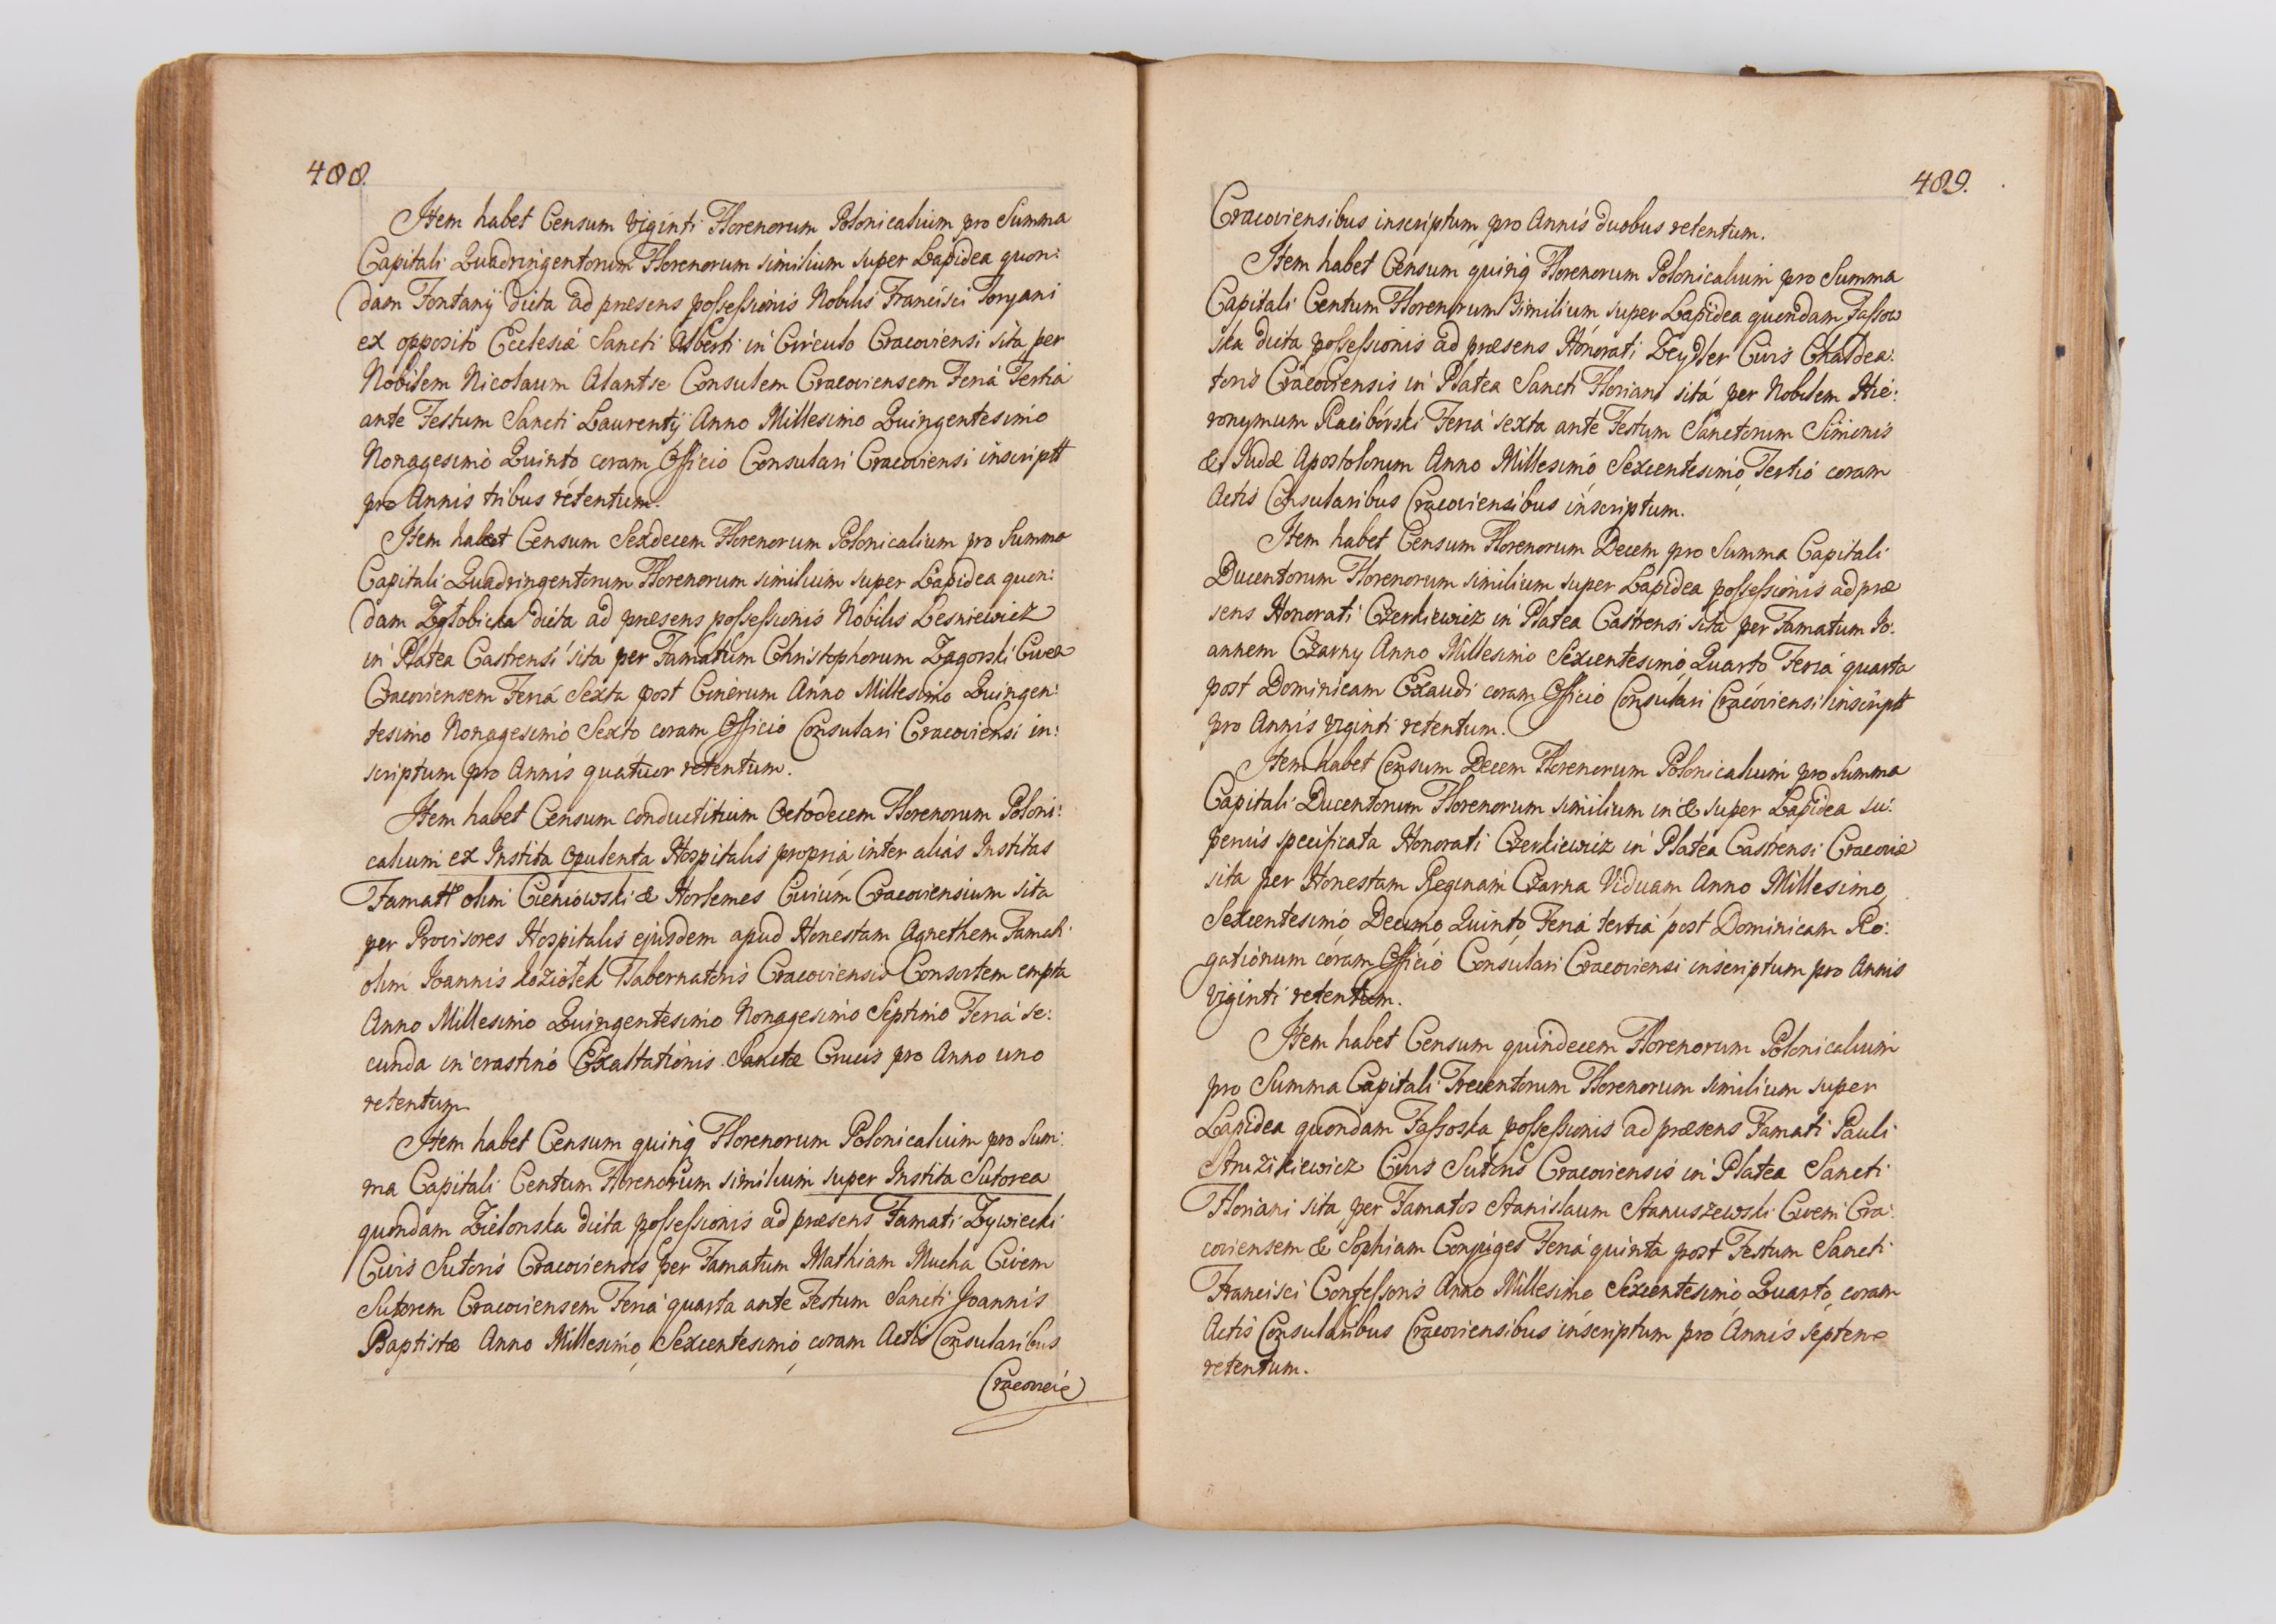 488.
Item habet Censum Viginti Florenorum Polonicalium pro Summa
Capitali Quadringentorum Florenorum similium super Lapidea quon:
dam Fontanÿ dicta ad præsens possessionis Nobilis Francisci Toryani
ex opposito Ecclesiæ Sancti Alberti in Circulo Cracoviensi sita per
Nobilem Nicolaum Alantse Consulem Cracoviensem Feria Tertia
ante Festum Sancti Laurentÿ Anno Millesimo Quingentesimo
Nonagesimo Quinto coram Officio Consulari Cracoviensi inscriptt
pro Annis tribus retentum.
Item habet Censum Sexdecem Florenorum Polonicalium pro Summa
Capitali Quadringentorum Florenorum similium super Lapidea quon:
dam Zgłobicka dicta ad præsens possessionis Nobilis Lesniewicz
in Platea Castrensi sita per Famatum Christophorum Zagorski Civem
Cracoviensem Feria Sexta post Cinerum Anno Millesimo Quingen:
tesimo Nonagesimo Sexto coram Officio Consulari Cracoviensi in:
scriptum pro Annis quatuor retentum.
Item habet Censum conductitium Octodecem Florenorum Poloni:
calium ex Instita Opulenta Hospitalis propria inter alias Institas
Famatt olim Cieniowski & Horlemes Civium Cracoviensium sita
per Provisores Hospitalis ejusdem apud Honestam Agnethem Famati
olim Joannis Koziołek Tabernatoris Cracoviensis Consortem empta
Anno Millesimo Quingentesimo Nonagesimo Septimo Feria se:
cunda in crastino Exaltationis Sanctæ Crucis pro Anno uno
retentum
Item habet Censum quinq Florenorum Polonicalium pro Sum:
ma Capitali Centum Florenorum similium super Instita Sutorea
quondam Zielonska dicta possessionis ad præsens Famati Zywiecki
Civis Sutoris Cracoviensis per Famatum Mathiam Mucha Civem
Sutorem Cracoviensem Feria quarta ante Festum Sancti Joannis
Baptistæ Anno Millesimo Sexcentesimo coram Actis Consularibus
489.
Cracoviensibus inscriptum pro Annis duobus retentum.
Item habet Censum quinq Florenorum Polonicalium pro Summa
Capitali Centum Florenorum Similium super Lapidea quondam Fassow
ska dicta possessionis ad præsens Honorati Zeydler Civis Chaldea:
toris Cracoviensis in Platea Sancti Floriani sita per Nobilem Hie:
ronymum Raciborski Feria sexta ante Festum Sanctorum Simonis
& Judæ Apostolorum Anno Millesimo Sexcentesimo Tertio coram
Actis Consularibus Cracoviensibus inscriptum.
Item habet Censum Florenorum Decem pro Summa Capitali
Ducentorum Florenorum similium super Lapidea possessionis ad præ
sens Honorati Czerkiewicz in Platea Castrensi sita per Famatum Jo:
annem Czarny Anno Millesimo Sexcentesimo Quarto Feria quarta
post Dominicam Exaudi coram Officio Consulari Cracoviensi inscriptt
pro Annis viginti retentum.
Item habet Censum Decem Florenorum Polonicalium pro Summa
Capitali Ducentorum Florenorum similium in & super Lapidea su:
perius specificata Honorati Czerkiewicz in Platea Castrensi Cracoviæ
sita per Honestam Reginam Czarna Viduam Anno Millesimo
Sexcentesimo Decimo Quinto Feria tertia post Dominicam Ro:
gationum coram Officio Consulari Cracoviensi inscriptum pro Annis
viginti retentum.
Item habet Censum quindecem Florenorum Polonicalium
pro Summa Capitali Trecentorum Florenorum similium super
Lapidea quondam Fassoska possessionis ad præsens Famati Pauli
Struzikiewicz Civis Sutoris Cracoviensis in Platea Sancti
Floriani sita per Famatos Stanislaum Stanuszewski Civem Cra:
coviensem & Sophiam Conjuges Feria quinta post Festum Sancti
Francisci Confessoris Anno Millesimo Sexcentesimo Quarto coram
Actis Consularibus Cracoviensibus inscriptum pro Annis septem
retentum.